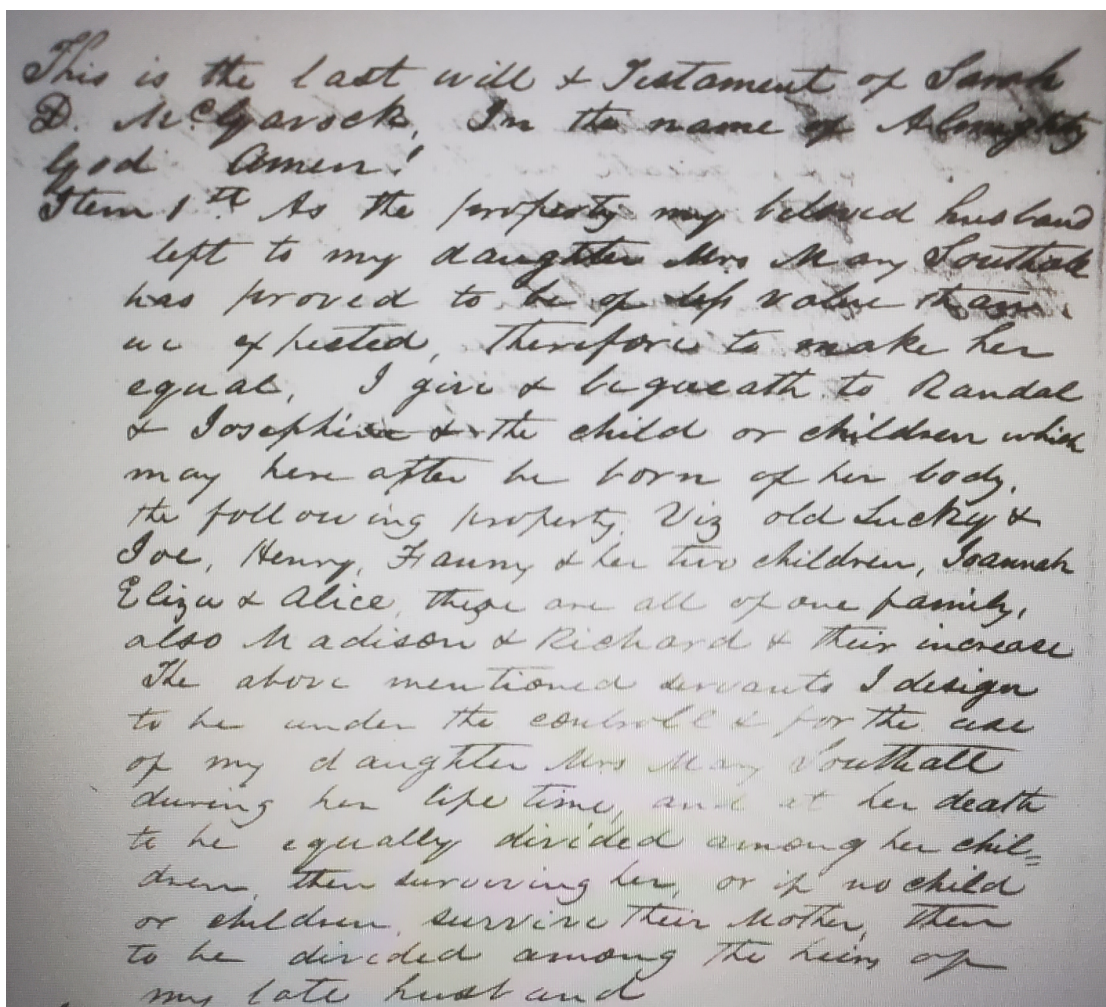 This is the last will & Testament of Sarah
D. McGavock, In the name of Almighty
God Amen!
Item 1st As the property my beloved husband
left to my daughter Mrs Mary Southall
has proved to be of less value than
we expected, therefore to make her
equal, I give & bequeath to Randal
& Josephine & the child or children which
may here after be born of her body,
the following property, Viz old Lucky &
Joe, Henry, Fanny & her two children, Joannah
Eliza & Alice, these are all of one family,
also Madison & Richard & their increase
The above mentioned servants I design
to be under the controll & for the use
of my daughter Mrs Mary Southall
during her life time, and at her death
to be equally divided among her chil=
dren, then surviving her, or if no child
or children, survive their Mother, then
to be divided among the heirs of
my late husband